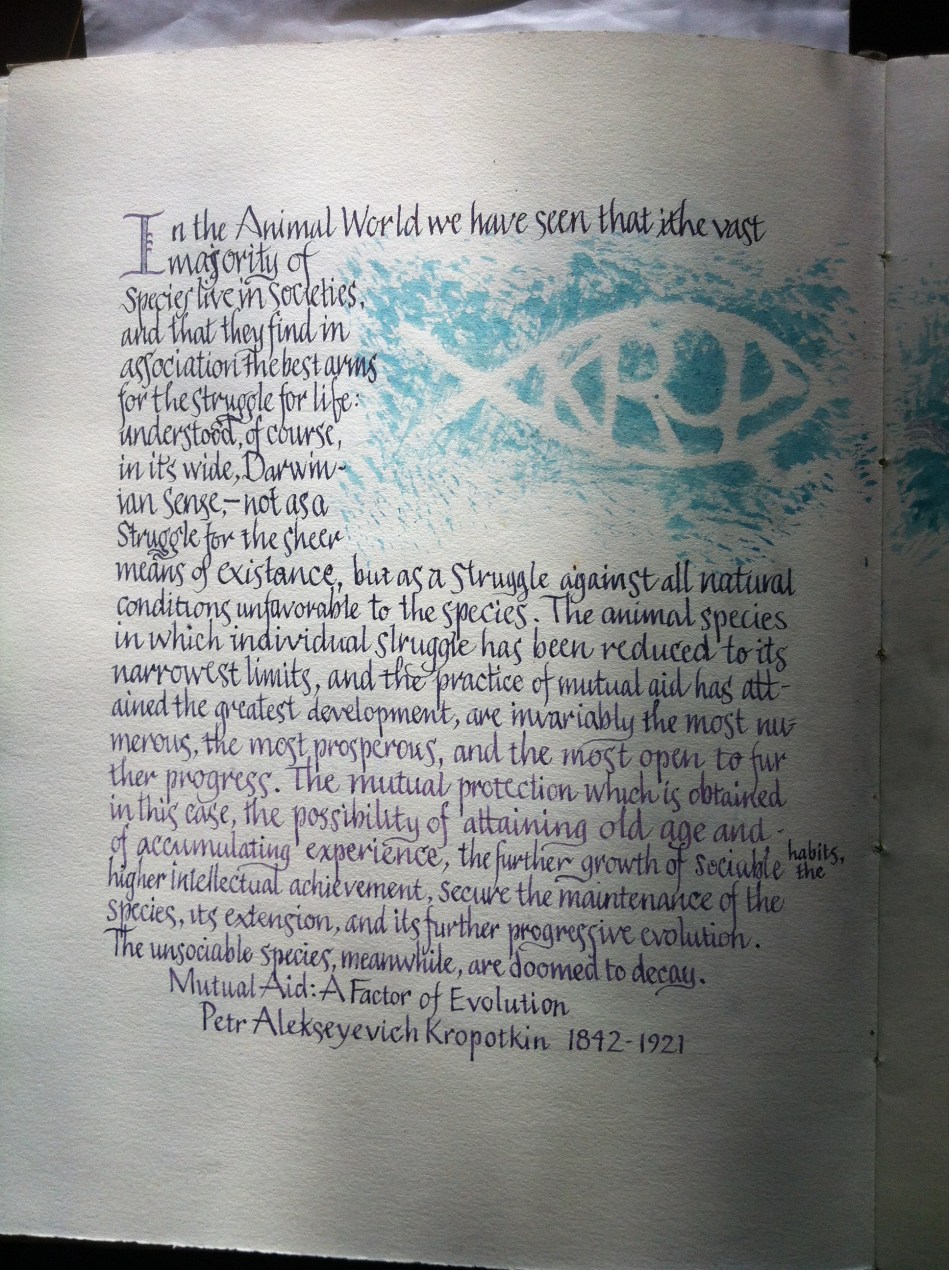 In the Animal World we have seen that ithe vast
majority of
species live in societies,
and that they find in
association the best arms
for the struggle for life:
understood, of course,
in it's wide, Darwin-
ian sense,– not as a
struggle for the sheer
means of existance, but as a struggle against all natural
conditions unfavorable to the species. The animal species
in which individual slruggle has been reduced to its
narrowest limits, and the practice of mutual aid has att-
ained the greatest development, are invariably the most nu-
merous, the most prosperous, and the most open to fur
ther progress. The mutual protection which is obtained
in this case, the possibility of attaining old age and -
of accumulating experience, the further growth of sociable habits, the
higher intellectual achievement, secure the maintenance of the
species, its extension, and its further progressive evolution.
The unsociable species, meanwhile, are doomed to decay.
Mutual Aid: A Factor of Evolution
Petr Alekseyevich Kropotkin 1842-1921